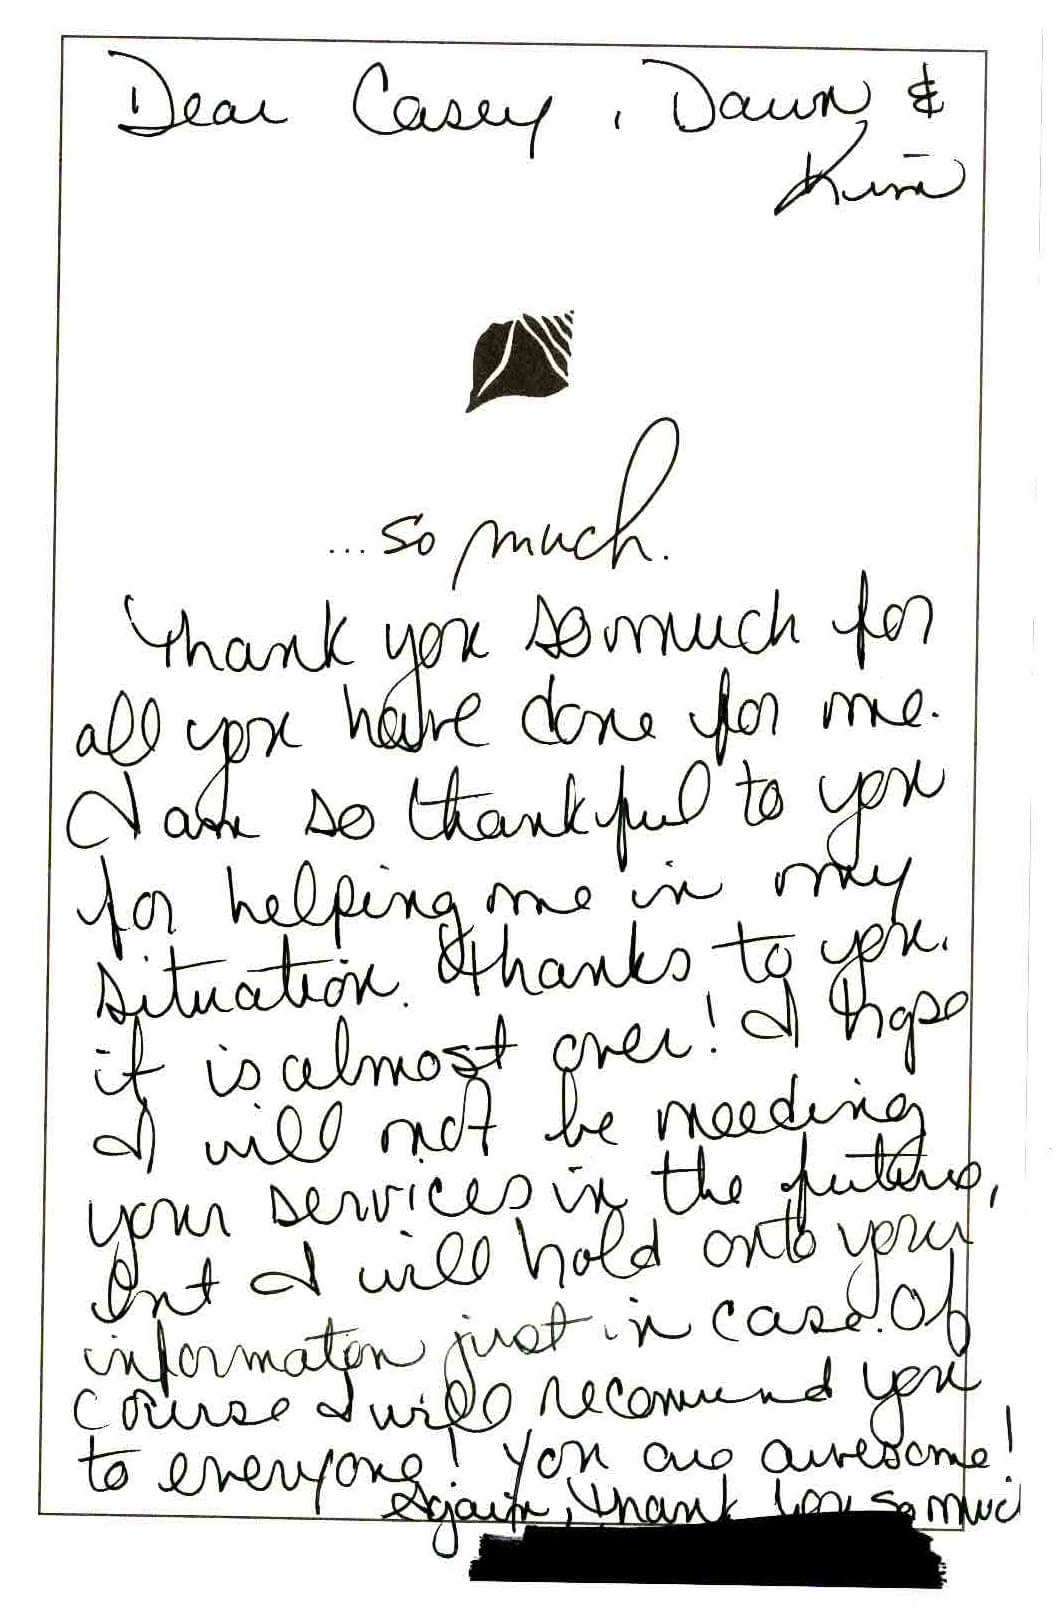 Dear Casey, Dawn &
Kim
...so much.
Thank you so much for
all you have done for me.
I am so thankful to you
for helping me in my
situation. Thanks to you.
it is almost over! I hope
I will not be needing
your services in the future,
but I will hold onto your
informaton just in case. Of
course I will recomend you
to everyone! You are awesome!
Again, thank you so much